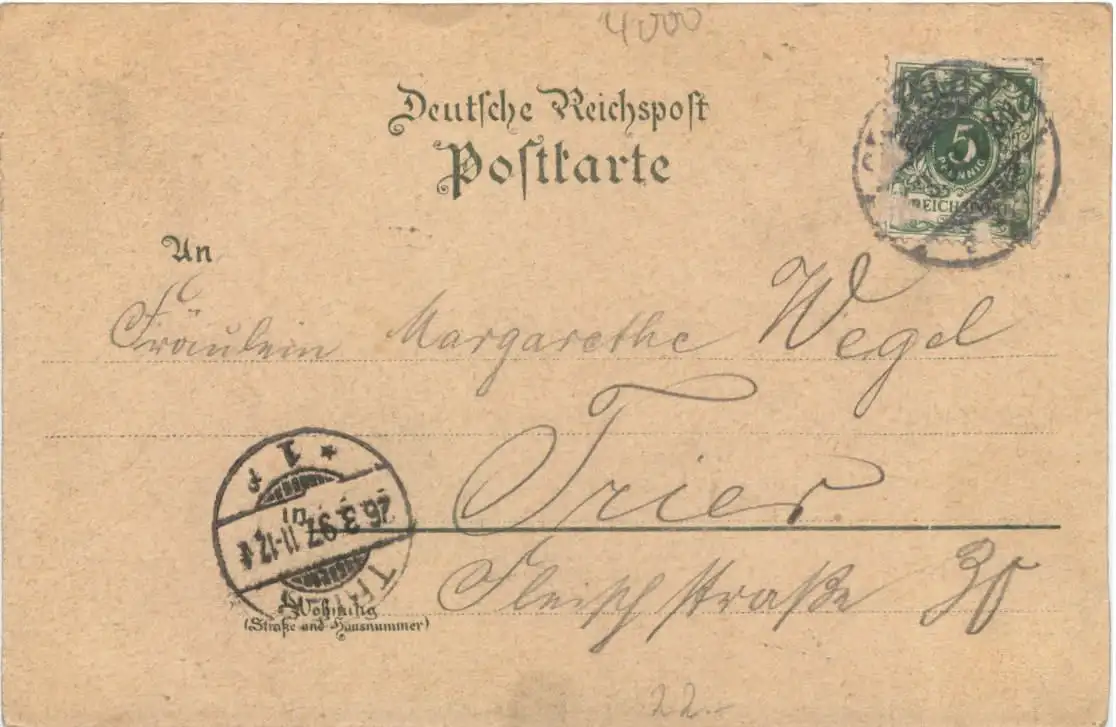 4000
Deutsche Reichspost
Postkarte
5
PFENNIG
REICHSPOST
An
Fräulein Margarethe Wegel
Trier
Fleischstraße 30
1
26.3.97. 11-12
TRIER
Wohnung
(Straße und Hausnummer)
22.-